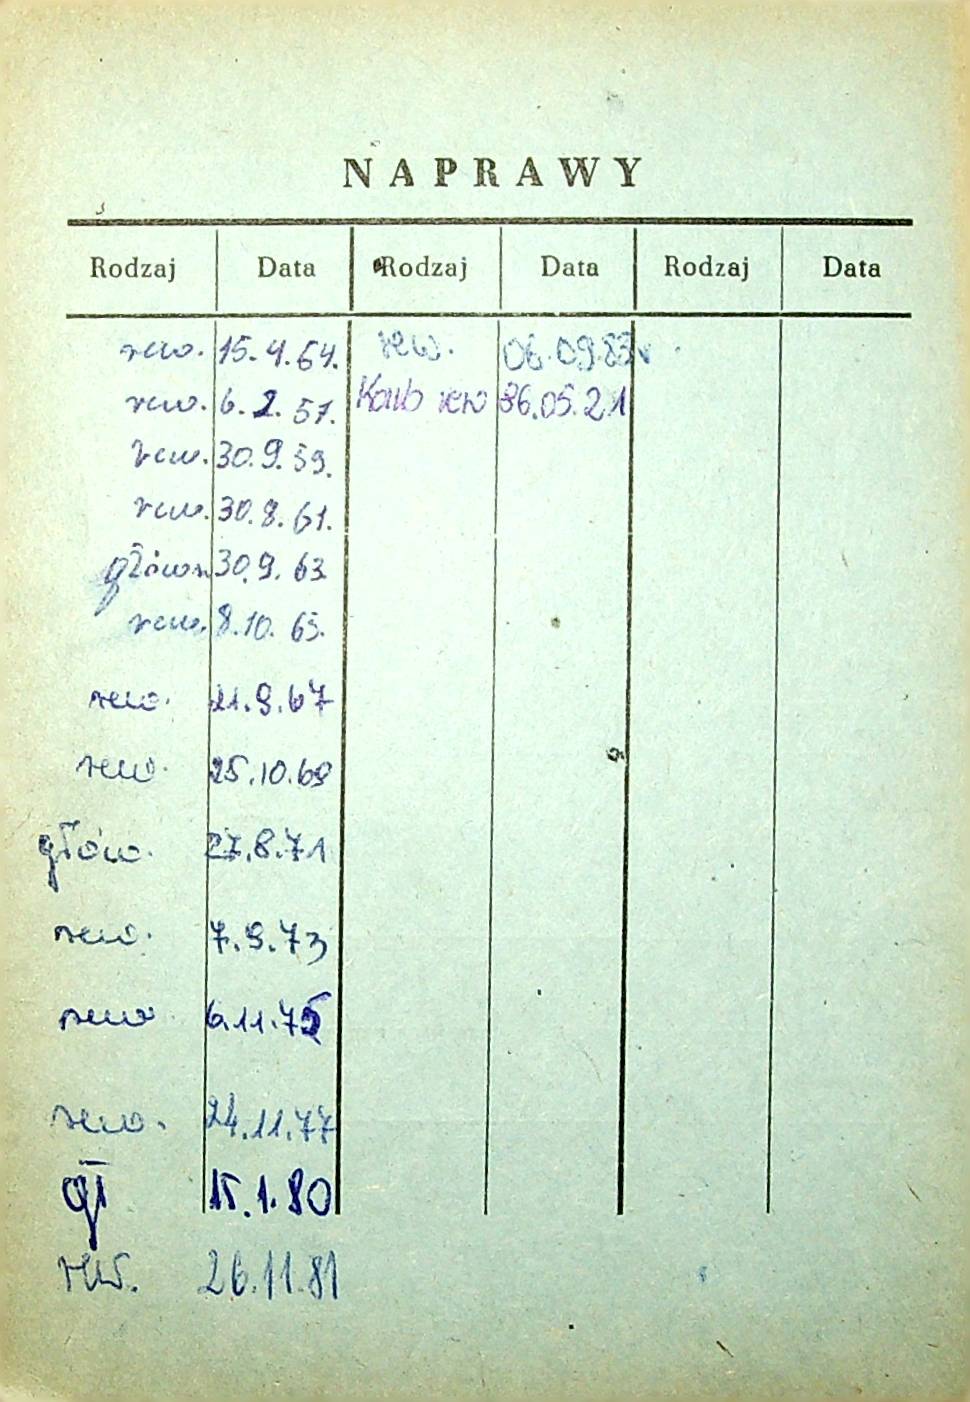 NAPRAWY
Rodzaj Data Rodzaj Data Rodzaj Data
rew. 15.4.54. rew. 06.09.83r.
rew. 6.2.57. Kont rew 86.05.21
rew. 30.9.59.
rew. 30.8.61.
główn 30.9.63
rew. 8.10.65.
rew. 21.9.67
rew. 25.10.69
głów. 27.8.71
rew. 7.9.73
rew 6.11.75
rew. 24.11.77
gł 15.1.80
rew. 26.11.81